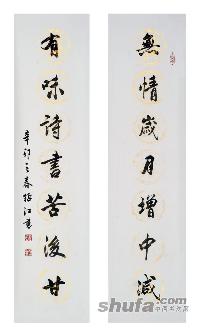 無情歲月增中減
有味詩書苦後甘
辛卯之春
shufa.com